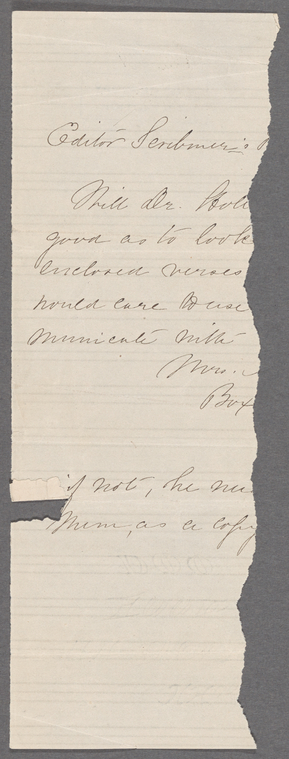 Editor Scribner's
Will Dr. Holl
good as to look
enclosed verses
would care to use
municate with
Mrs.
Box
if not, he nee
them, as a copy